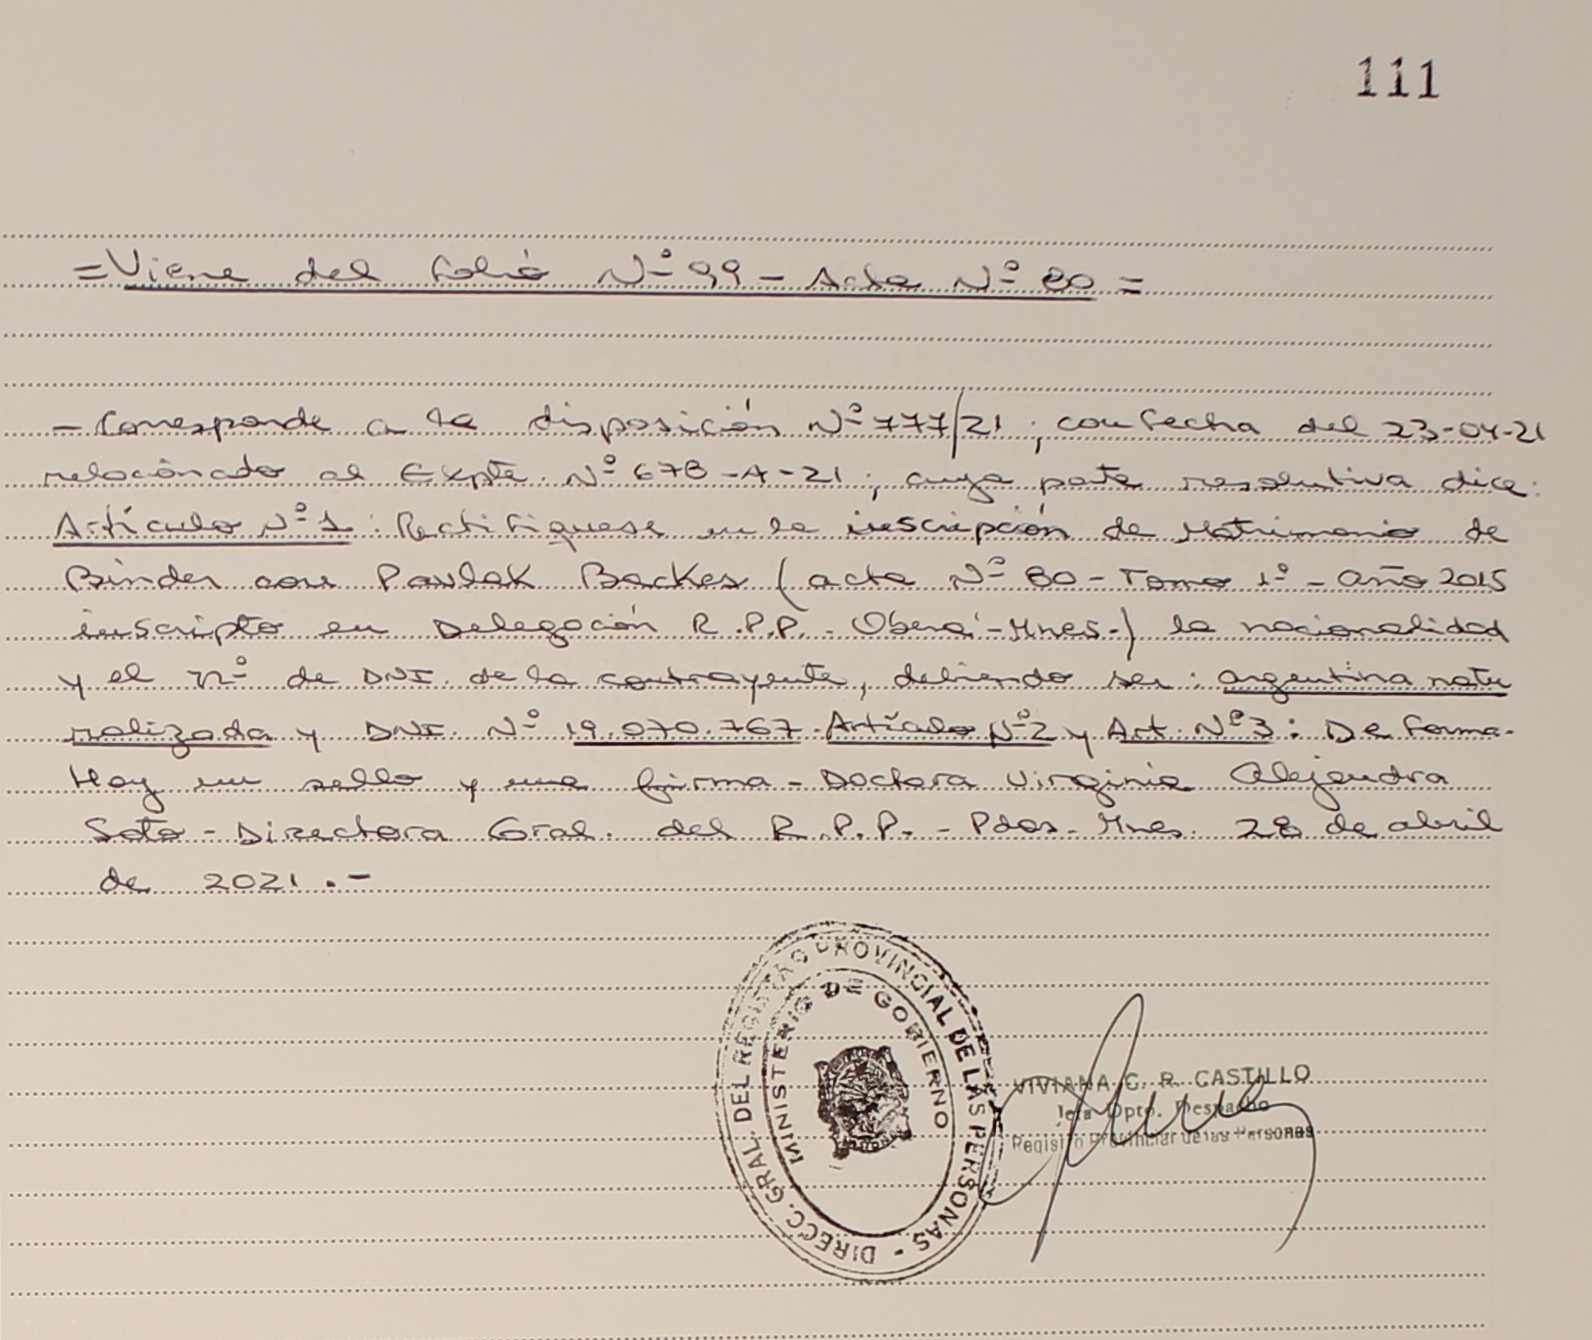 111
=Viene del folio Nº 99 - Acta Nº 80 =
- Corresponde a la disposición Nº 777/21 ; con fecha del 23-04-21
relacionado al Expte. Nº 678-A-21 ; cuya parte resolutiva dice:
Artículo Nº 1 : Rectifiquese en la inscripción de Matrimonio de
Binder con Pavlak Backes ( acta Nº 80 - Tomo 1º - año 2015
inscripto en Delegación R.P.P. Oberá - Mnes.) la nacionalidad
y el nº de DNI. de la contrayente, debiendo ser : argentina natu
ralizada y DNI. Nº 19.070.767. Artículo Nº 2 y Art. Nº 3 : De forma.
Hay un sello y una firma - Doctora Virginia Alejandra
Soto - Directora Gral. del R.P.P. - Pdas. Mnes. 28 de abril
de 2021 . -
DIRECC. GRAL. DEL REGISTRO PROVINCIAL DE LAS PERSONAS -
MINISTERIO DE GOBIERNO
VIVIANA G. R. CASTILLO
Jefa Dpto. Despacho
Registro Provincial de las Personas